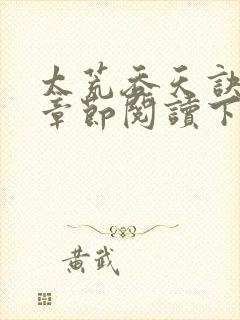 太荒吞天訣
章節閱讀下
黃武